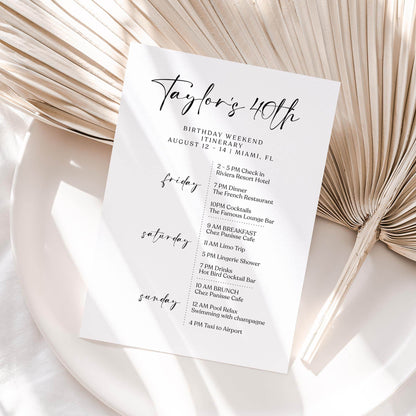 Taylor's 40th
BIRTHDAY WEEKEND
ITINERARY
AUGUST 12 - 14 | MIAMI, FL
friday
2 - 5 PM Check in
Riviera Resort Hotel
7 PM Dinner
The French Restaurant
10PM Cocktails
The Famous Lounge Bar
saturday
9 AM BREAKFAST
Chez Panisse Cafe
11 AM Limo Trip
5 PM Lingerie Shower
7 PM Drinks
Hot Bird Cocktail Bar
sunday
10 AM BRUNCH
Chez Panisse Cafe
12 AM Pool Relax
Swimming with champagne
4 PM Taxi to Airport